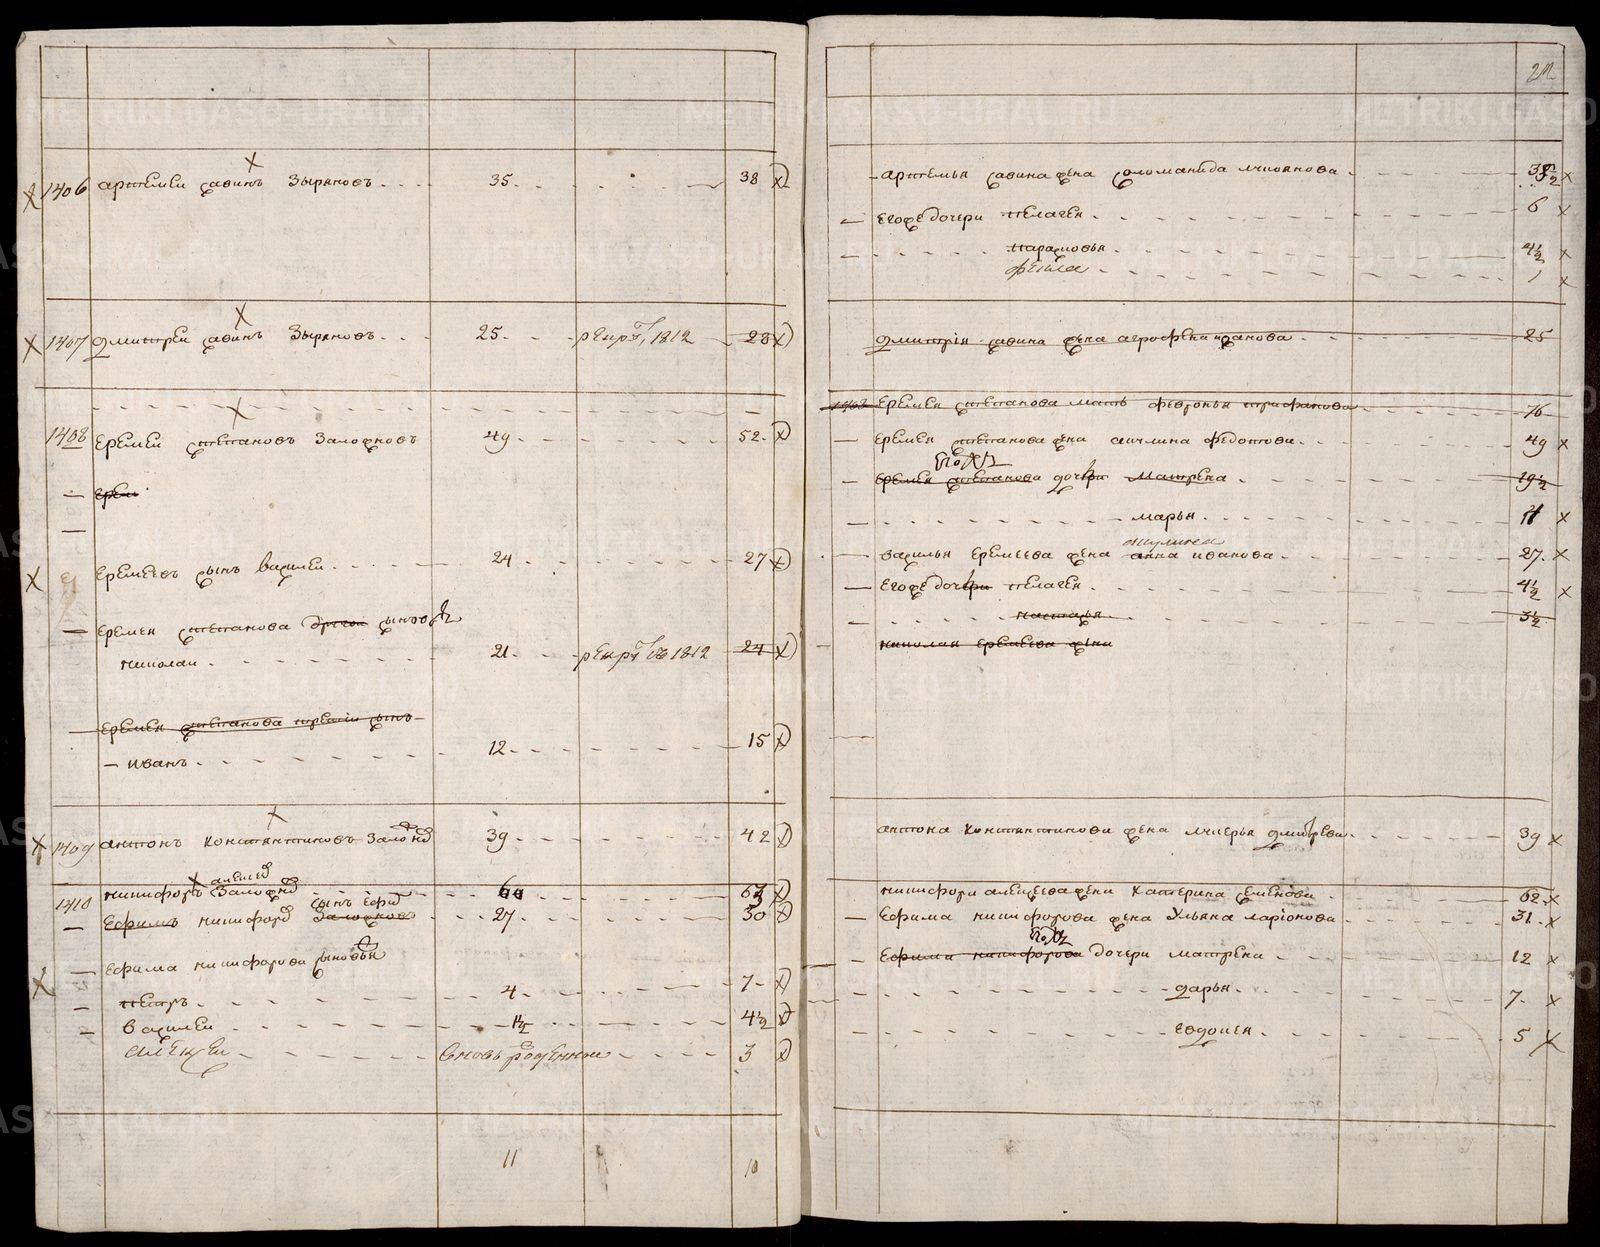 1406 артемеи савинъ Зыряновъ 35 38
1407 дмитреи савинъ Зыряновъ 25 рекрут 1812 28
1408 Еремеи степановъ Заложновъ 49 52
Ереме
Еремеевъ сынъ василеи 24 27
Еремея степанова
николаи 21 рекрут въ 1812 24
Еремея степанова третеи сынъ
иванъ 12 15
1409 антонъ Константиновъ 39 42
1410 никифоръ
Ефимъ 27 30
Ефима никифорова сыновья
петръ 4 7
василеи 1½ 4½
алексеи вновь рожденнои 3
11 10
артемья савина жена соломанида
Егоже дочери пелагея 6
парасковья 4½
фекла 1
дмитрія савина жена агрофена 25
1408 Еремея степанова мать февронья трифанова 76
Еремея степанова жена акилина федотова 49
Его
Еремея степанова дочери матрена 19½
марья
акулина
василья Еремеева жена анна иванова 27
Егоже дочери пелагея 4½
настасья 3½
николая Еремеева жена
антона Константинова жена лукерья дмитрева 39
никифора алексеева жена Катерина семенова 62
Ефима никифорова жена Ульяна ларіонова 31
Ефима никифорова дочери матрена 12
дарья 7
евдокея 5
METRIKI.GASO-URAL.RU